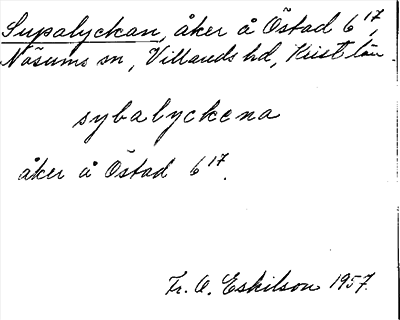 Supalyckan, åker å Östad 6¹⁷,
Näsums sn, Villands hd, Krist län.
sybalyckena
åker å Östad 6¹⁷.
Fr. O. Eskilson 1957.